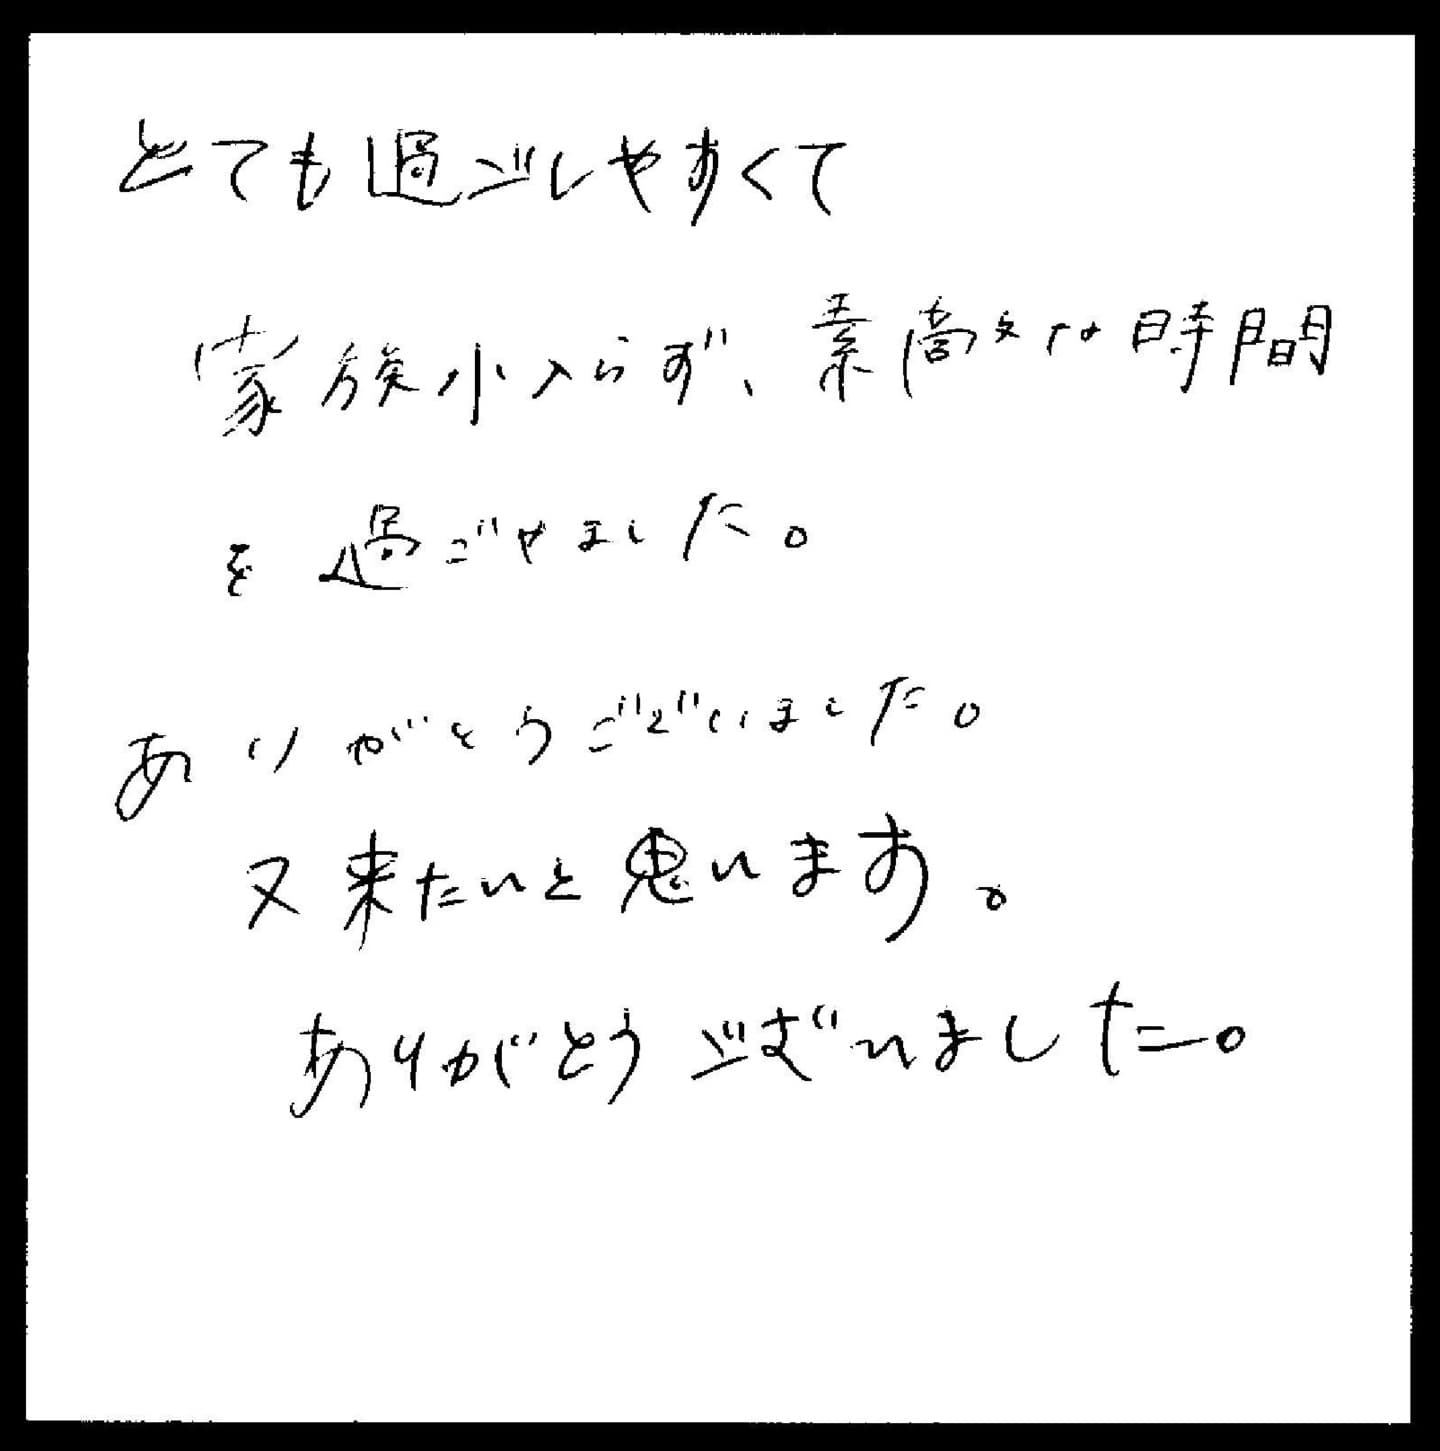 とても過ごしやすくて
家族小入らず、素敵な時間
を過ごせました。
ありがとうございました。
又来たいと思います。
ありがとうございました。